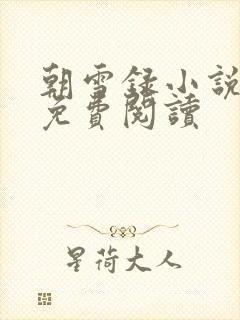 朝雪録小說
免費閱讀
星荷大人